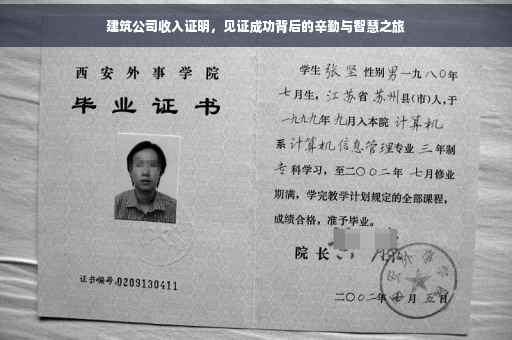 建筑公司收入证明，见证成功背后的辛勤与智慧之旅
西安外事学院
毕业证书
证书编号:0209130411
学生 张坚 性别 男 一九八〇年
七月生，江苏省 苏州县(市)人,于
一九九九年 九月入本院 计算机
系 计算机信息管理专业 三 年制
专科学习，至二〇〇二年 七月修业
期满，学完教学计划规定的全部课程，
成绩合格，准予毕业。
院长
二〇〇二年 七月 五日